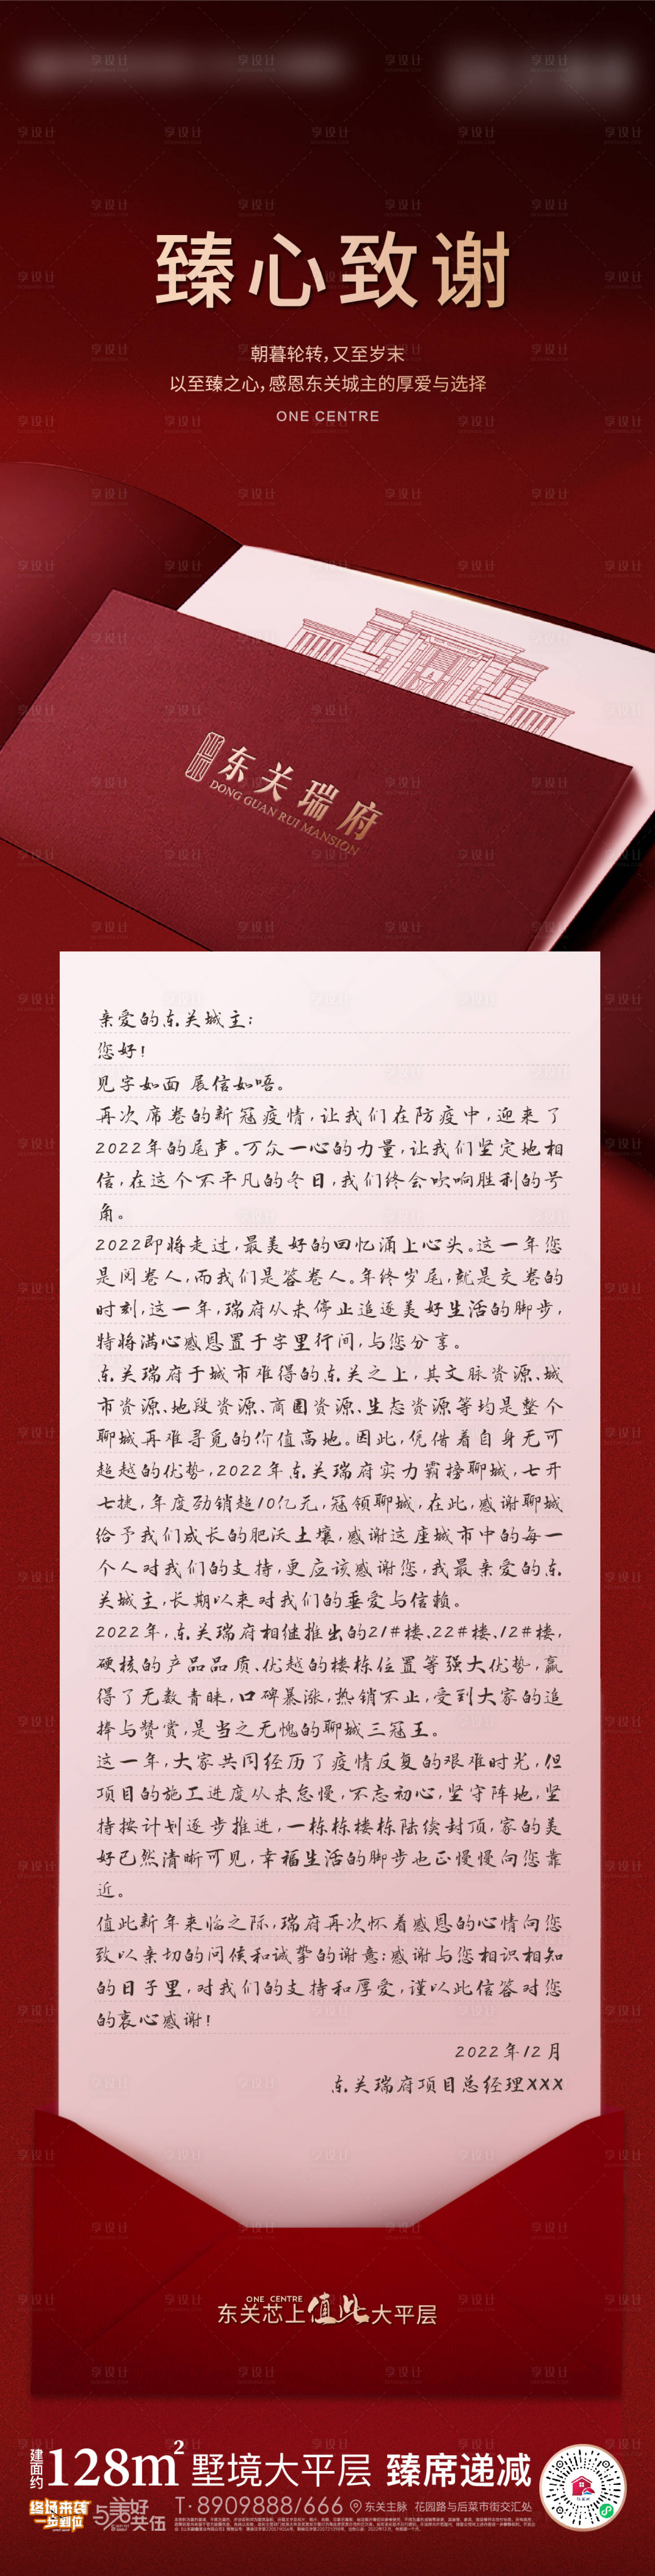 臻心致谢
朝暮轮转,又至岁末
以至臻之心,感恩东关城主的厚爱与选择
ONE CENTRE
东关瑞府
DONG GUAN RUI MANSION
亲爱的东关城主:
您好!
见字如面 展信如唔。
再次席卷的新冠疫情,让我们在防疫中,迎来了
2022年的尾声。万众一心的力量,让我们坚定地相
信,在这个不平凡的冬日,我们终会吹响胜利的号
角。
2022即将走过,最美好的回忆涌上心头。这一年您
是阅卷人,而我们是答卷人。年终岁尾,就是交卷的
时刻,这一年,瑞府从未停止追逐美好生活的脚步,
特将满心感恩置于字里行间,与您分享。
东关瑞府于城市难得的东关之上,其文脉资源、城
市资源、地段资源、商圈资源、生态资源等均是整个
聊城再难寻觅的价值高地。因此,凭借着自身无可
超越的优势,2022年东关瑞府实力霸榜聊城,七开
七捷,年度劲销超10亿元,冠领聊城,在此,感谢聊城
给予我们成长的肥沃土壤,感谢这座城市中的每一
个人对我们的支持,更应该感谢您,我最亲爱的东
关城主,长期以来对我们的垂爱与信赖。
2022年,东关瑞府相继推出的21#楼、22#楼、12#楼,
硬核的产品品质、优越的楼栋位置等强大优势,赢
得了无数青睐,口碑暴涨,热销不止,受到大家的追
捧与赞赏,是当之无愧的聊城三冠王。
这一年,大家共同经历了疫情反复的艰难时光,但
项目的施工进度从未怠慢,不忘初心,坚守阵地,坚
持按计划逐步推进,一栋栋楼栋陆续封顶,家的美
好已然清晰可见,幸福生活的脚步也正慢慢向您靠
近。
值此新年来临之际,瑞府再次怀着感恩的心情向您
致以亲切的问候和诚挚的谢意:感谢与您相识相知
的日子里,对我们的支持和厚爱,谨以此信答对您
的衷心感谢!
2022年12月
东关瑞府项目总经理XXX
ONE CENTRE
东关芯上值此大平层
建面约128m² 墅境大平层 臻席递减
终极来袭
一步到位
5美好共伍
T·8909888/666 东关主脉 花园路与后菜市街交汇处